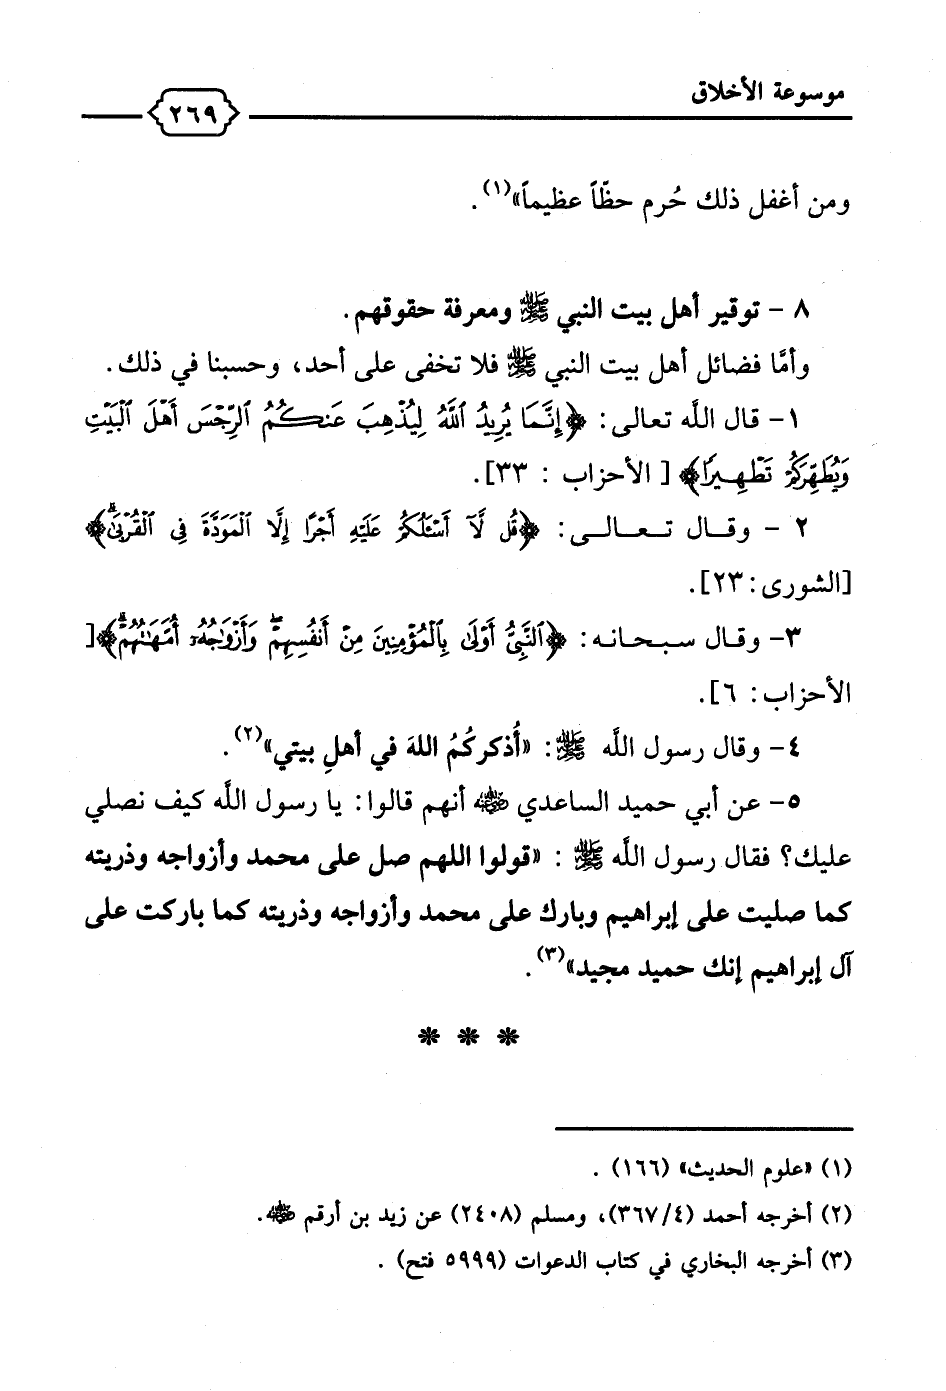 موسوعة الأخلاق
٢٦٩
ومن أغفل ذلك حُرم حظّاً عظيماً»(١).
٨ - توقير أهل بيت النبي ﷺ ومعرفة حقوقهم.
وأمَّا فضائل أهل بيت النبي ﷺ فلا تخفى على أحد، وحسبنا في ذلك.
١- قال اللَّه تعالى: ﴿إِنَّمَا يُرِيدُ ٱللَّهُ لِيُذْهِبَ عَنكُمُ ٱلرِّجْسَ أَهْلَ ٱلْبَيْتِ
وَيُطَهِّرَكُمْ تَطْهِيرًا﴾ [الأحزاب : ٣٣].
٢ - وقال تعالى: ﴿قُل لَّآ أَسْـَٔلُكُمْ عَلَيْهِ أَجْرًا إِلَّا ٱلْمَوَدَّةَ فِى ٱلْقُرْبَىٰ﴾
[الشورى: ٢٣].
٣- وقال سبحانه: ﴿ٱلنَّبِىُّ أَوْلَىٰ بِٱلْمُؤْمِنِينَ مِنْ أَنفُسِهِمْ وَأَزْوَٰجُهُۥٓ أُمَّهَـٰتُهُمْ﴾ [
الأحزاب: ٦].
٤- وقال رسول اللَّه ﷺ: «أُذكركُمُ اللهَ في أهلِ بيتي»(٢).
٥- عن أبي حميد الساعدي رضي الله عنه أنهم قالوا: يا رسول اللَّه كيف نصلي
عليك؟ فقال رسول اللَّه ﷺ : «قولوا اللهم صل على محمد وأزواجه وذريته
كما صليت على إبراهيم وبارك على محمد وأزواجه وذريته كما باركت على
آل إبراهيم إنك حميد مجيد»(٣).
* * *
(١) «علوم الحديث» (١٦٦) .
(٢) أخرجه أحمد (٣٦٧/٤)، ومسلم (٢٤٠٨) عن زيد بن أرقم رضي الله عنه.
(٣) أخرجه البخاري في كتاب الدعوات (٥٩٩٩ فتح) .